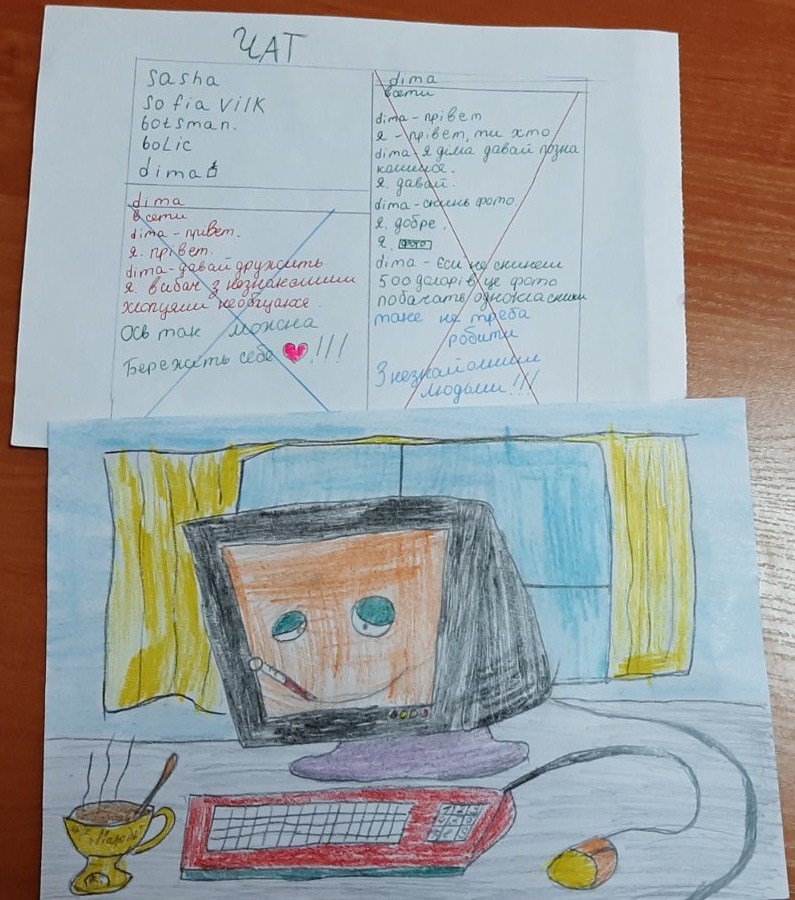 ЧАТ
Sasha
Sofia Vilk
botsman.
bolic
dima
dima
в сети
dima - привет.
я. прівет.
dima - давай дружить
я. вибач з незнакомими
хлопцями необщаюся.
Ось так можна
Бережить себе !!!
dima
в сети
dima - прівет
я - прівет, ти хто
dima - я діма давай позна
комимся.
я. давай.
dima - скинь фото.
я. добре.
я. фото
dima - Єсли не скинеш
500 доларів це фото
побачать однокласники
таке не треба
робити
З незнайомими
людьми!!!